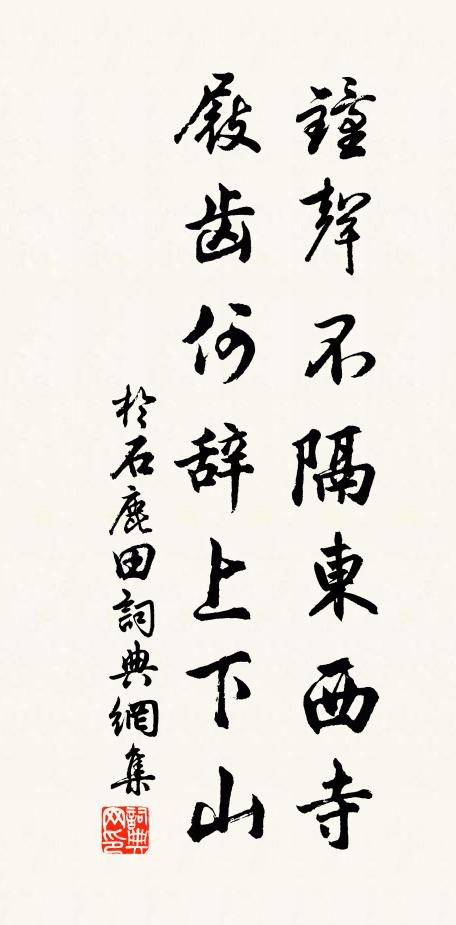 鐘聲不隔東西寺
屐齒何辞上下山
於石鹿田詞典網集
詞典网印